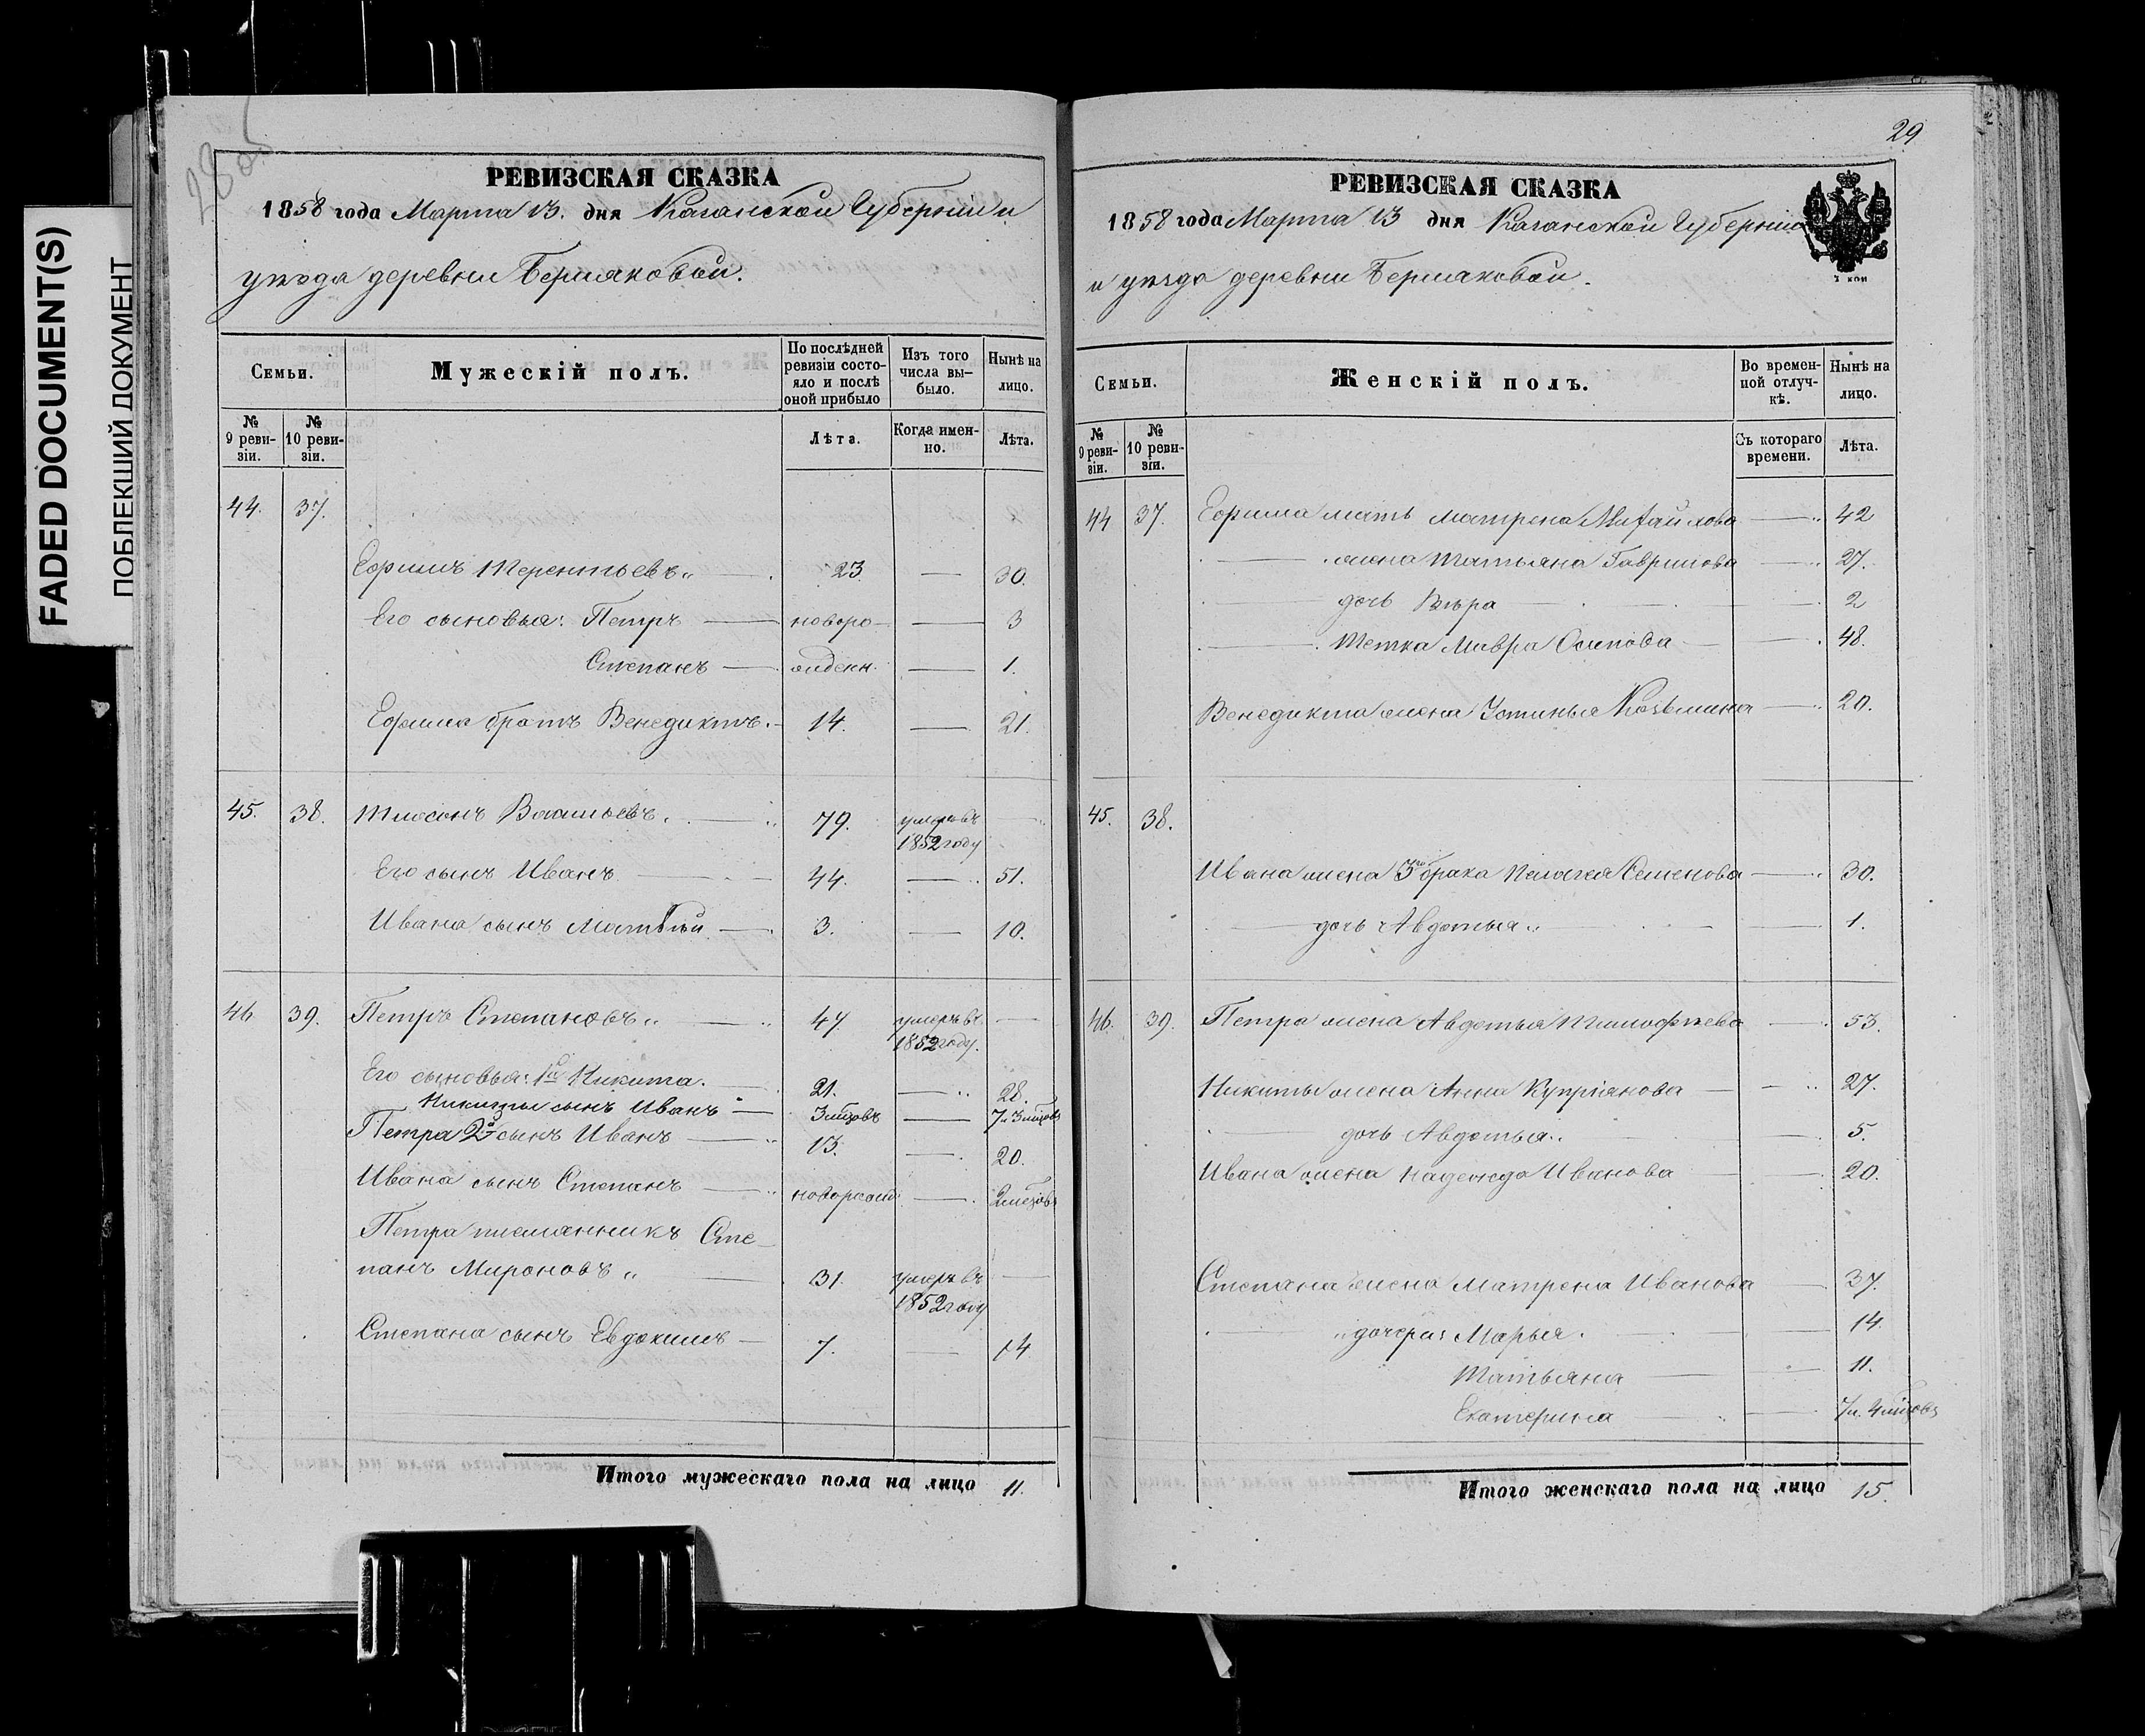 FADED DOCUMENT(S)
ПОБЛЕКШИЙ ДОКУМЕНТ
28 об
РЕВИЗСКАЯ СКАЗКА
1858 года Марта 13. дня Казанской Губернии и
уѣзда деревни Бермяковой.
Семьи.
Мужескій полъ.
По послѣдней ревизіи состояло и послѣ оной прибыло
Изъ того числа выбыло.
Нынѣ на лицо.
№ 9 ревизіи.
№ 10 ревизіи.
Лѣта.
Когда именно.
Лѣта.
44. 37.
Ефимъ Терентьевъ 23 — 30.
Его сыновья: Петръ новоро — 3
Степанъ жденн. — 1.
Ефима братъ Венедиктъ. 14. — 21.
45. 38. Васильевъ. 79. умеръ въ —
1852 году
Его сынъ Иванъ 44. — 51.
Ивана сынъ Матвѣй 3. — 10.
46 39. Петръ Степановъ 47 умеръ въ —
1852 году.
Его сыновья: 1й Никита. 21. — 28.
Никиты сынъ Иванъ — 3 мѣсцовъ — 7 и 3 мѣсцовъ
Петра 2й сынъ Иванъ 13. — 20.
Ивана сынъ Степанъ новорожд. — 2 месецовъ
Петра племянникъ Сте-
панъ Мироновъ 31. умеръ въ —
1852 году
Степана сынъ Евдокимъ — 7. — 14
Итого мужескаго пола на лицо 11.
29
РЕВИЗСКАЯ СКАЗКА
1858 года Марта 13 дня Казанской Губернии
и уѣзда деревни Бермяковой.
Семьи.
Женскій полъ.
Во временной отлучкѣ.
Нынѣ на лицо.
№ 9 ревизіи.
№ 10 ревизіи.
Съ котораго времени.
Лѣта.
44 37. Ефима мать Матрена Михайлова — 42
— жена Татьяна Гаврилова — 27.
— дочь Вѣра — 2
— тетка Мавра Осипова — 48.
Венедикта жена Устинья Козьмина — 20.
45. 38.
Ивана жена 3го брака Пелагея Семенова — 30.
— дочь Авдотья — 1.
46. 39. Петра жена Авдотья Тимофѣева — 53.
Никиты жена Анна Купріянова — 27.
— дочь Авдотья — 5.
Ивана жена Надежда Иванова — 20.
Степана жена Матрена Иванова — 37.
дочери: Марья. — 14
Татьяна — 11.
Екатерина — 7 и 4 мѣсцовъ
Итого женскаго пола на лицо 15.